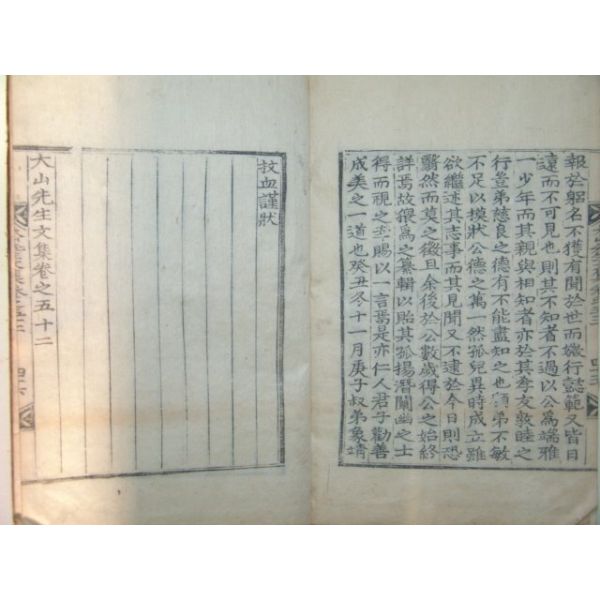 報於躬名不獲有聞於世而媺行懿範又皆日
遠而不可見也則其不知者不過以公爲端雅
一少年而其親與相知者亦於其孝友敦睦之
行豈弟慈良之德有不能盡知之也顧弟不敏
不足以模狀公德之萬一然孤兒異時成立雖
欲繼述其志事而其見聞又不逮於今日則恐
翳然而莫之徵且余後於公數歲得公之始終
詳焉故猥爲之纂輯以貽其孤揚潛闡幽之士
得而視之丕賜以一言焉是亦仁人君子勸善
成美之一道也癸丑冬十一月庚子叔弟象靖
抆血謹狀
大山先生文集卷之五十二